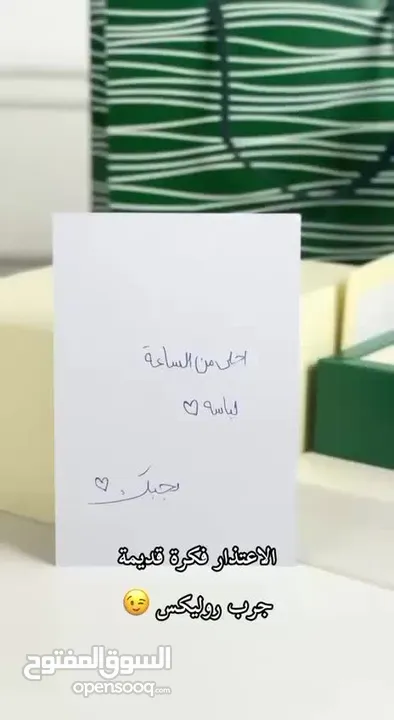 احلى من الساعة
لباسه ♡
بحبك ♡
الاعتذار فكرة قديمة
جرب روليكس 😉
السوق المفتوح
opensooq.com